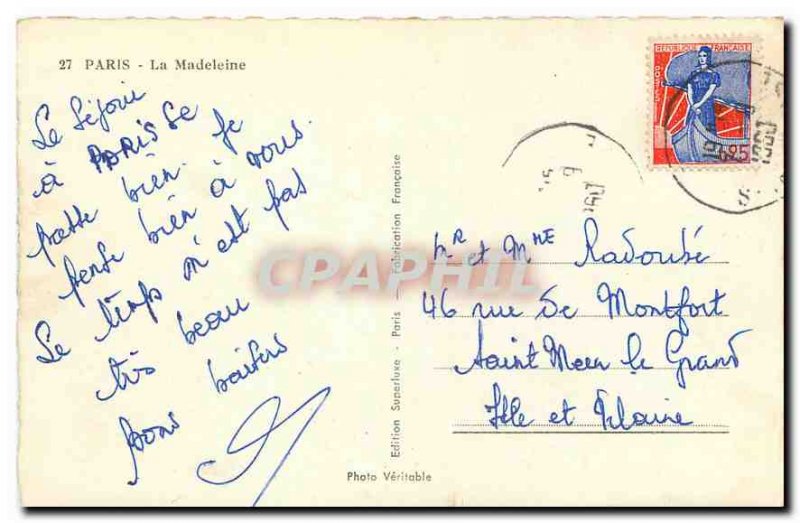 27 PARIS - La Madeleine
Le Séjour
à PARIS se
passe bien. Je
pense bien à vous.
Le temps n'est pas
très beau
Bons baisers
Edition Superluxe - Paris - Fabrication Française
Photo Véritable
REPUBLIQUE FRANÇAISE
POSTES
0,25
1960
Mr et Mme Radoubé
46 rue de Montfort
Saint Meen le Grand
Ille et Vilaine
CPAPHIL